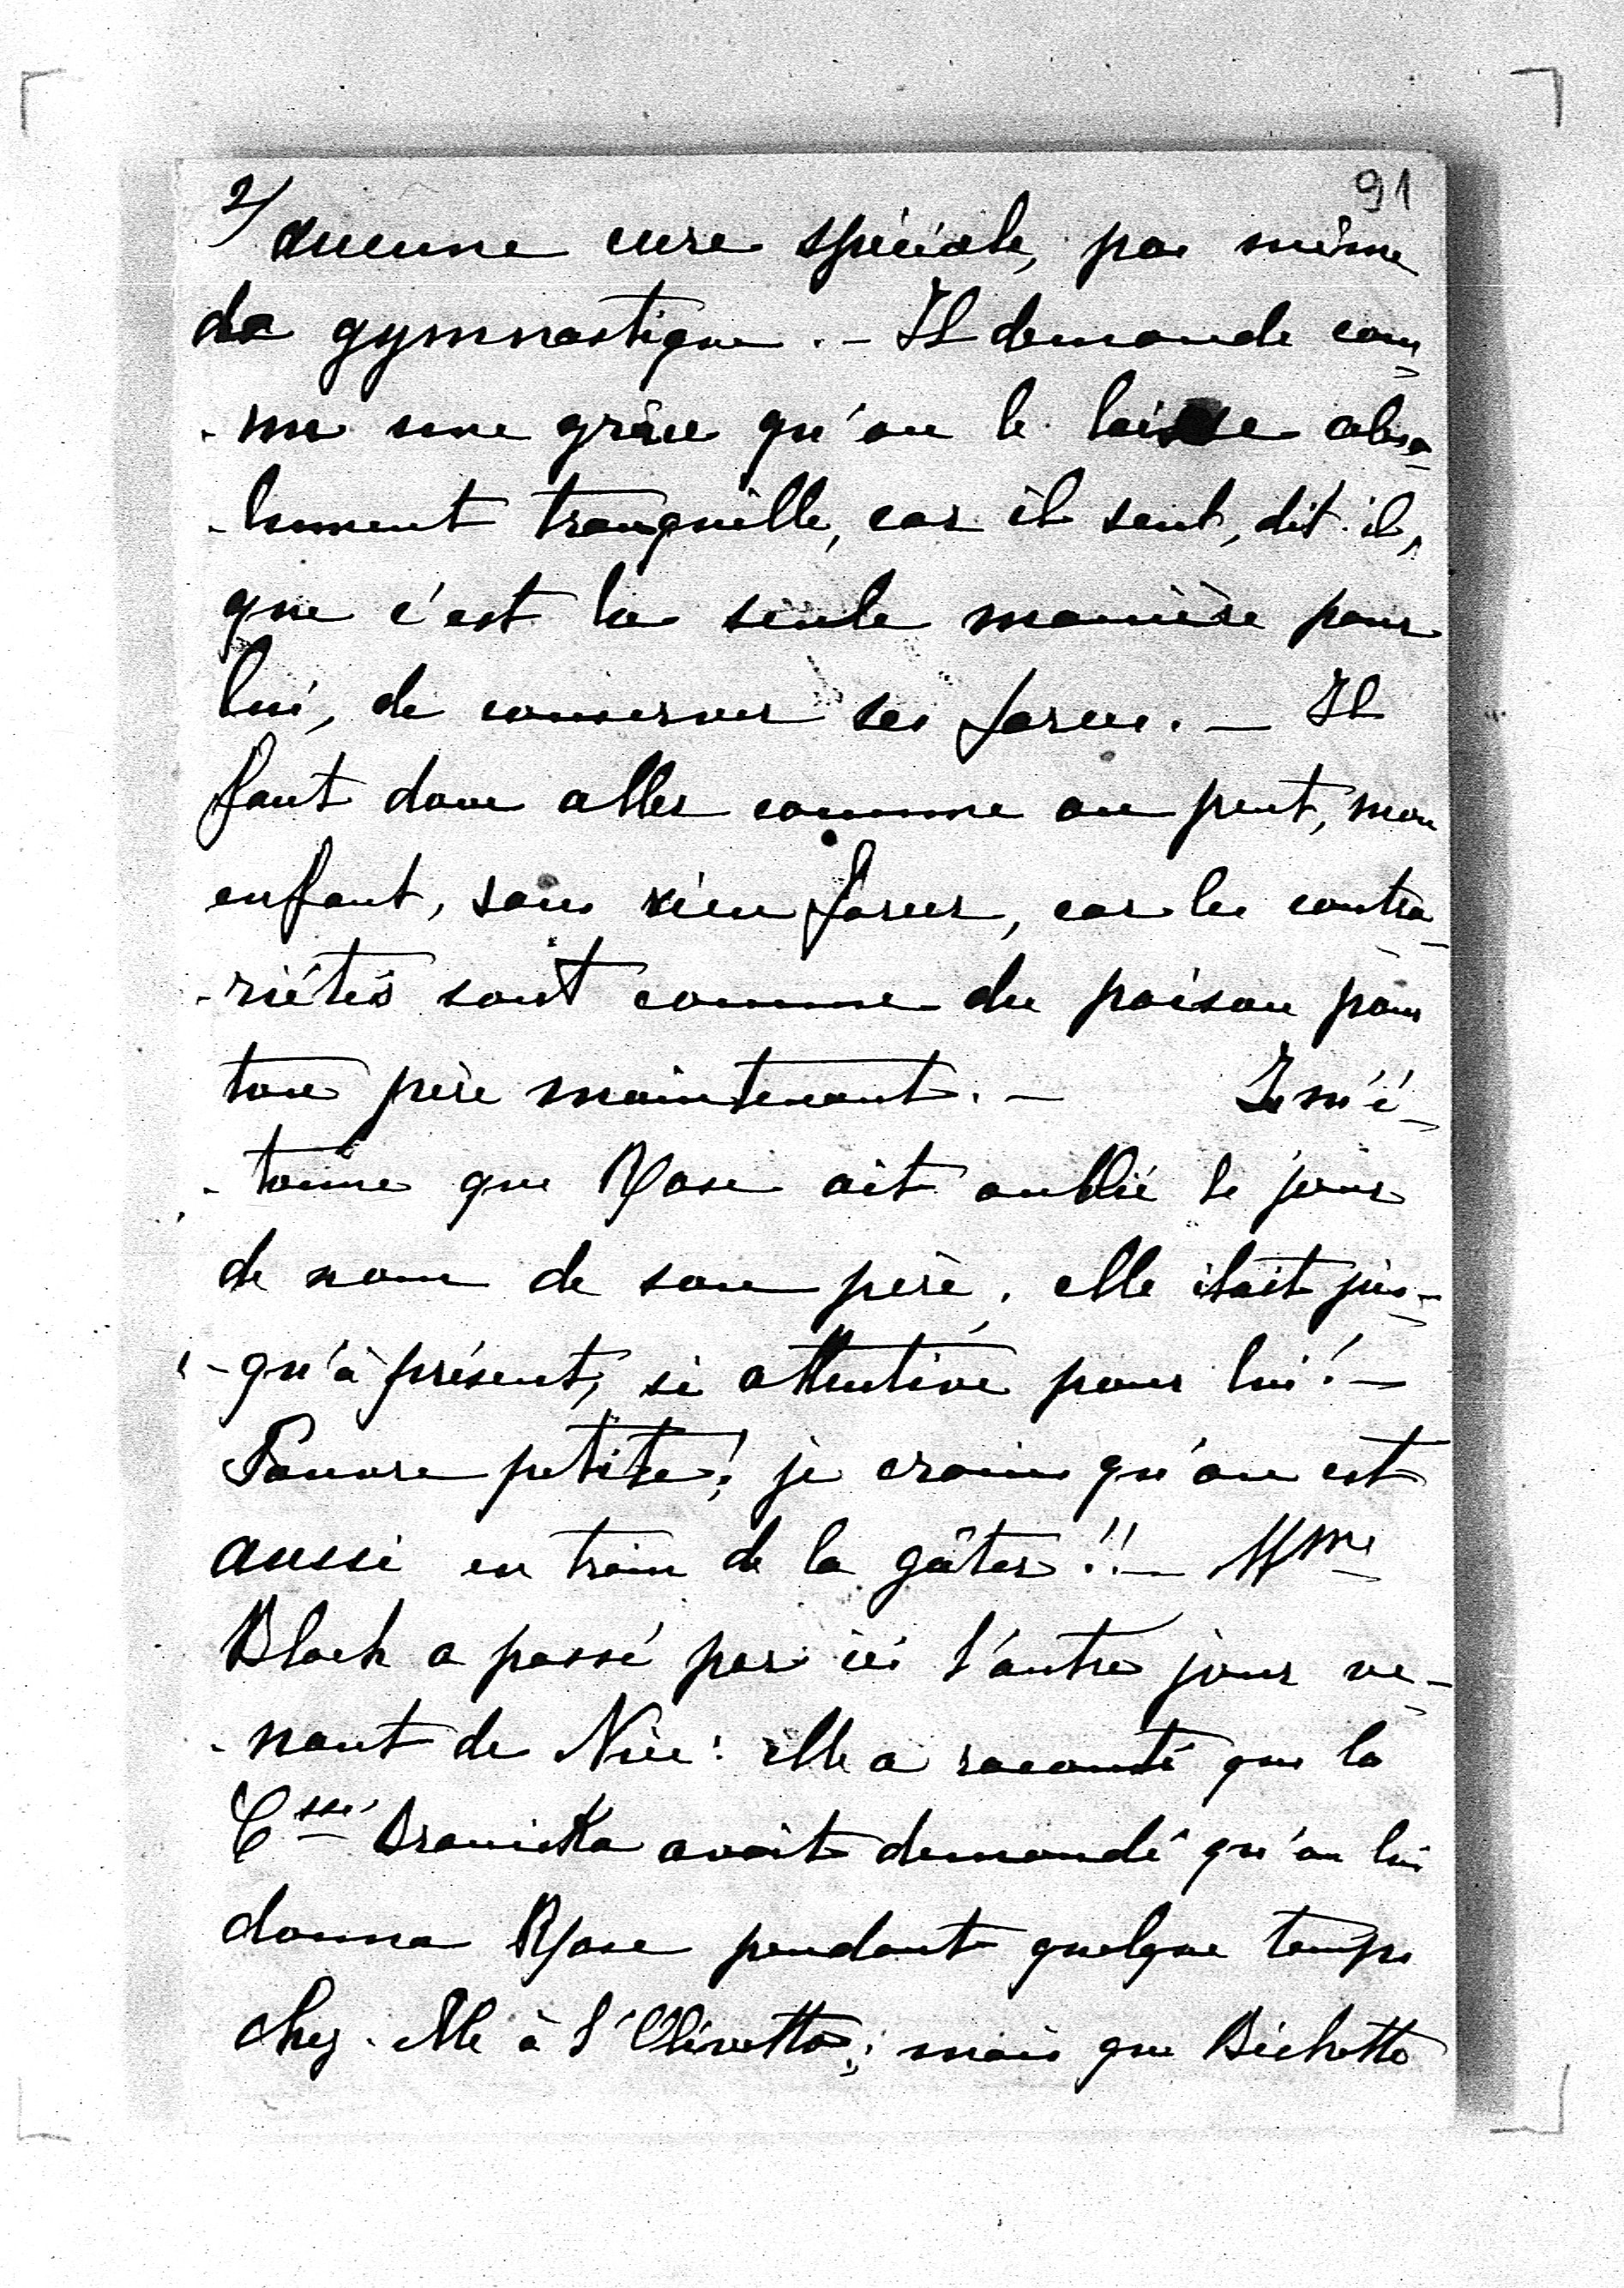 91
2/ aucune cure spéciale, pas même
de gymnastique. - Il demande com-
-me une grâce qu'on le laisse abso-
-lument tranquille, car il sent, dit-il,
que c'est la seule manière pour
lui, de conserver ses forces. - Il
faut donc aller comme on peut, mon
enfant, sans rien forcer, car les contra-
-riétés sont comme du poison pour
ton père maintenant. - Je m'é-
-tonne que Rose ait oublié le jour
de nom de son père, elle était jus-
-qu'à présent, si attentive pour lui! -
Pauvre petite! je crains qu'on est
aussi en train de la gâter!! - Mme
Bloch a passé par ici l'autre jour ve-
-nant de Nice: elle a raconté que la
Csse Branicka avait demandé qu'on lui
donna Rose pendant quelque temps
chez-elle à l'Olivetto; mais que Bichette